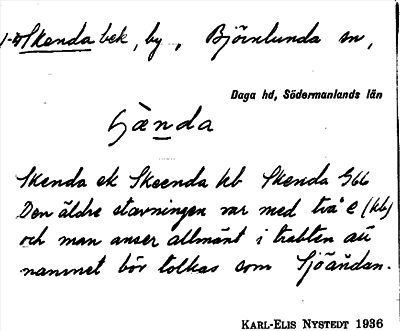 1-4 Skenda bek, by, Björnlunda sn,
Daga hd, Södermanlands län
ʃænda
Skenda ek Skeenda kb Skenda G66
Den äldre stavningen var med två e (kb)
och man anser allmänt i trakten att
namnet bör tolkas som Sjöändan.
KARL-ELIS NYSTEDT 1936